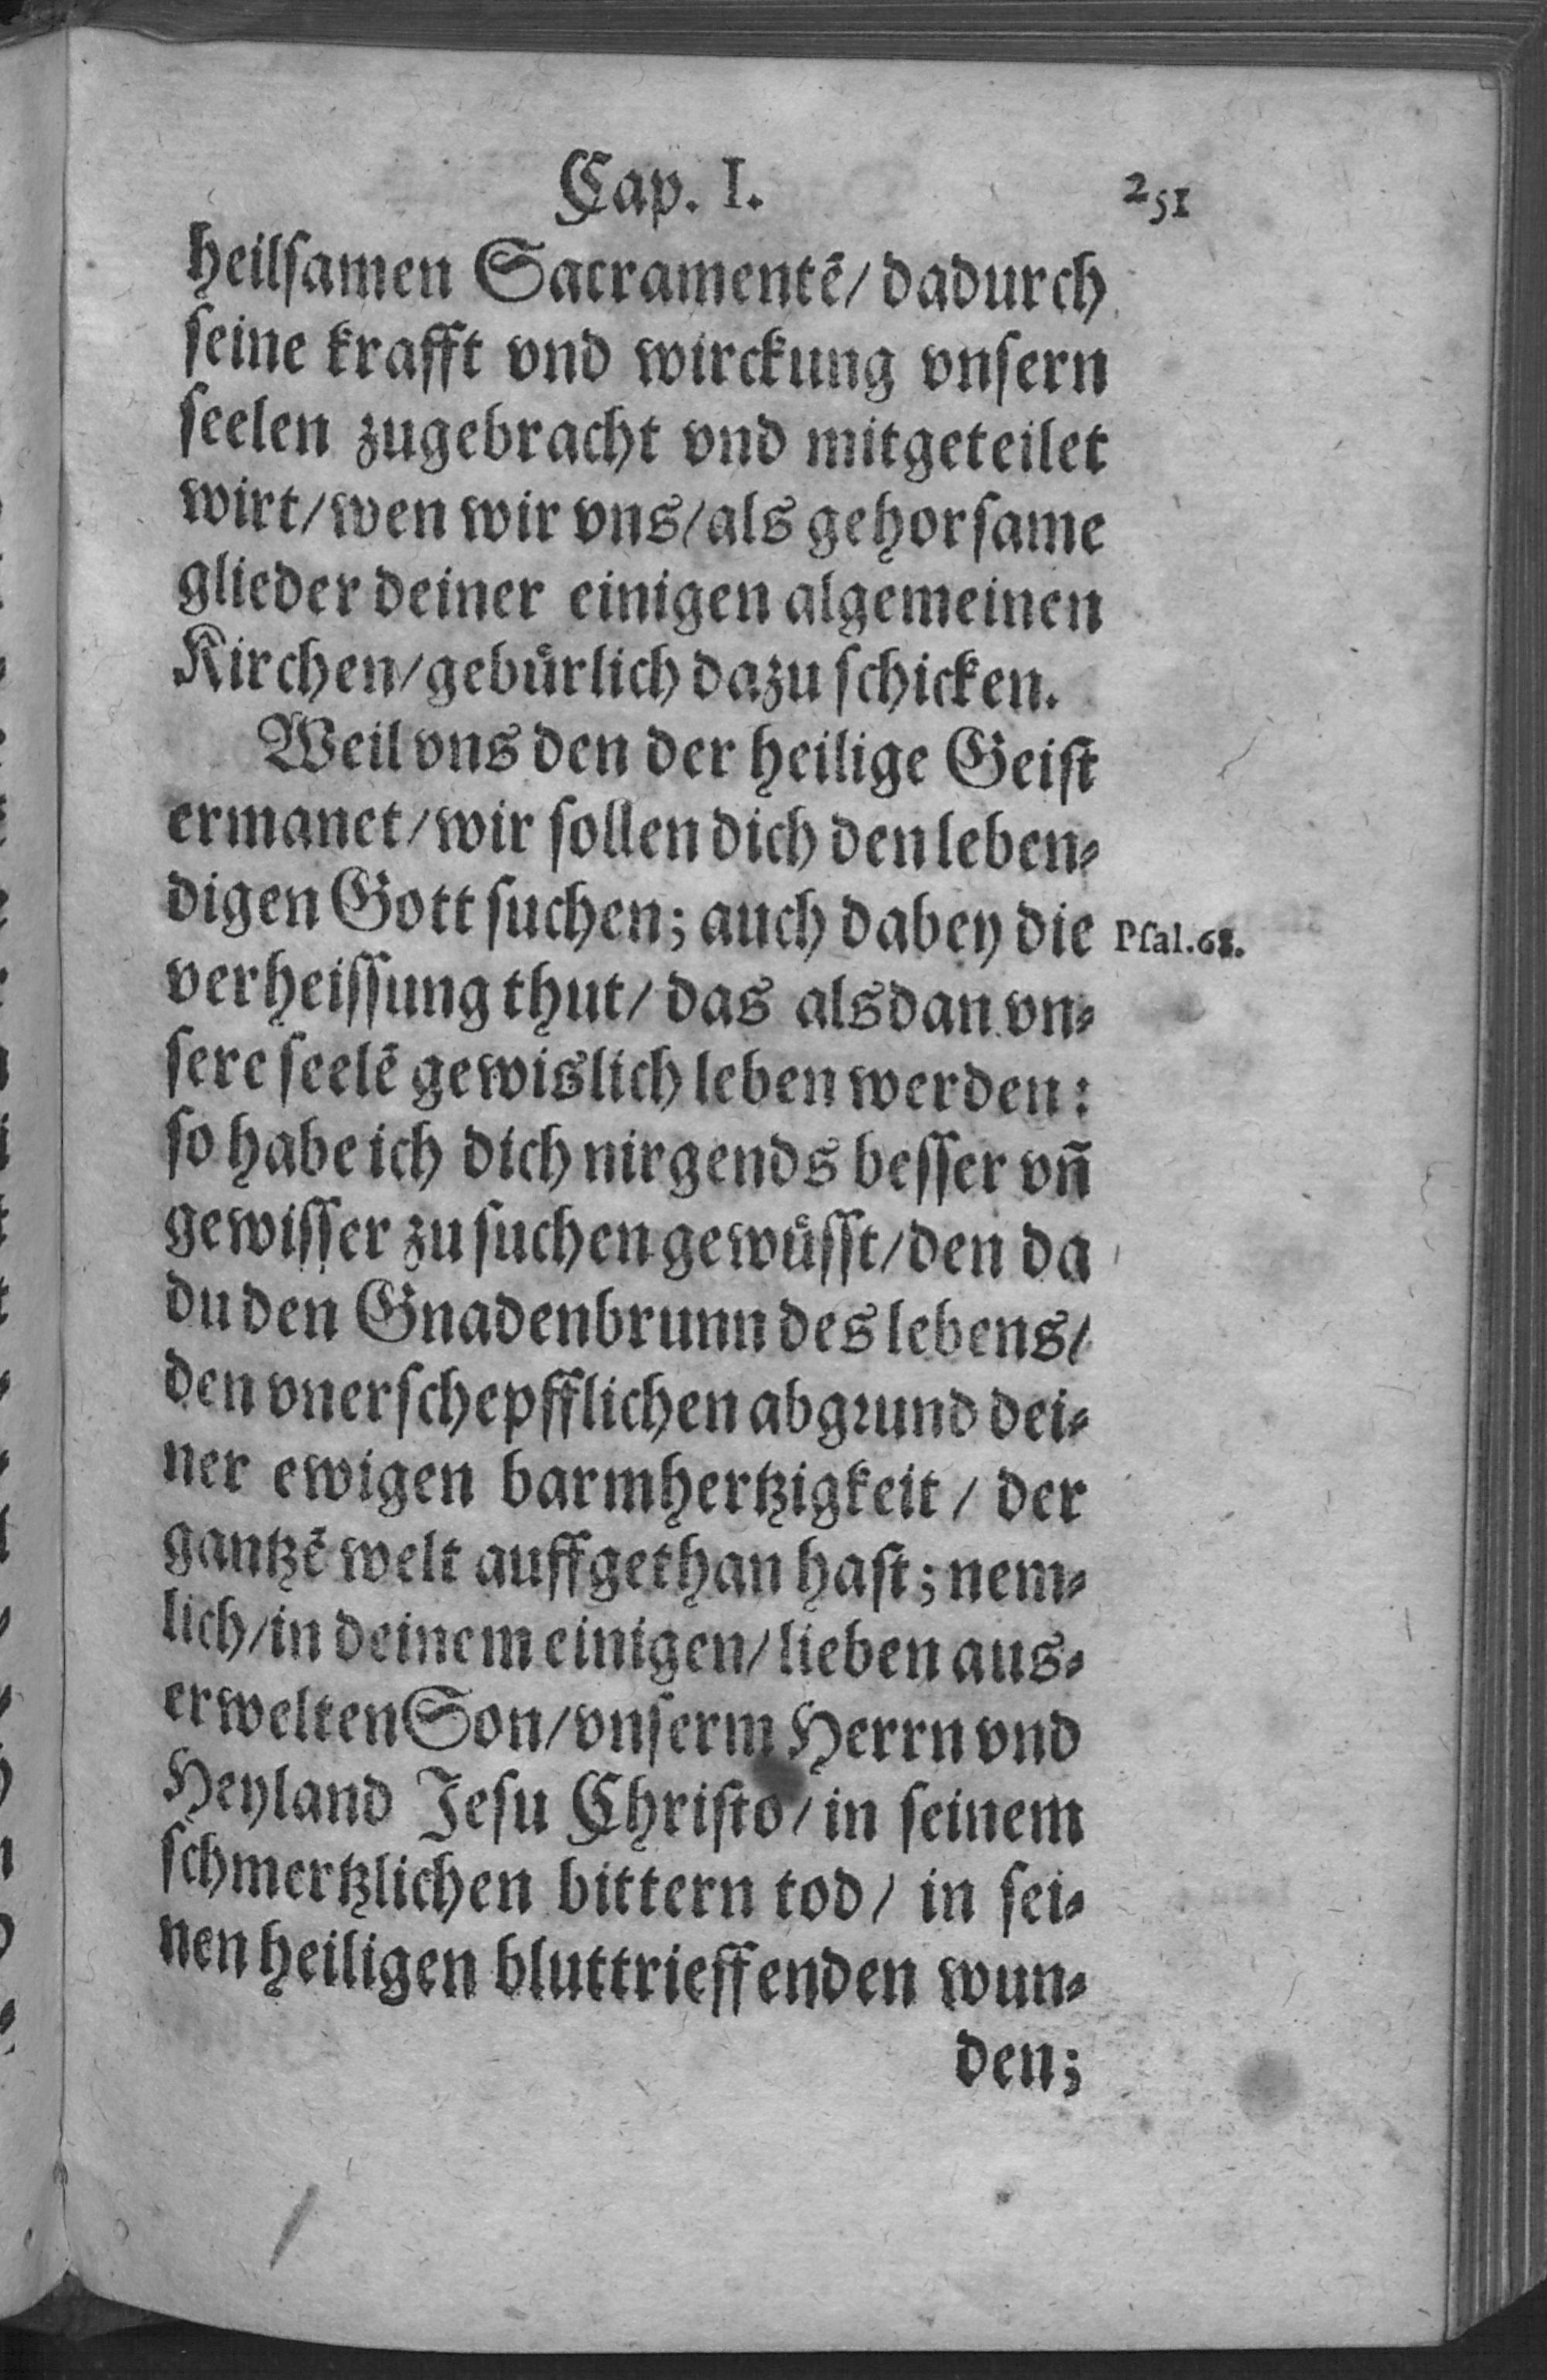 Cap. I. 251
heilſamen Sacramentē/ dadurch
ſeine krafft vnd wirckung vnſern
ſeelen zugebracht vnd mitgeteilet
wirt/wen wir vns/als gehorſame
glieder deiner einigen algemeinen
Kirchen/gebuͤrlich dazu ſchicken.
Weil vns den der heilige Geiſt
ermanet/wir ſollen dich den leben⸗
digen Gott ſuchen; auch dabey die Pſal.68.
verheiſſung thut/ das alsdan vn⸗
ſere ſeelē gewislich leben werden:
ſo habe ich dich nirgends beſſer vñ
gewiſſer zu ſuchen gewuͤſſt/den da
du den Gnadenbrunn des lebens/
den vnerſchepfflichen abgrund dei⸗
ner ewigen barmhertzigkeit / der
gantzē welt auffgethan haſt; nem⸗
lich/in deinem einigen/lieben aus⸗
erwelten Son/vnſerm Herrn vnd
Heyland Jeſu Chriſto/ in ſeinem
ſchmertzlichen bittern tod/ in ſei⸗
nen heiligen bluttrieffenden wun⸗
den;